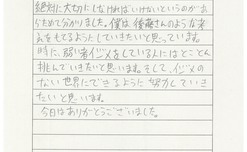 絶対に大切にしなければいけないというのがあ
らためて分かりました。僕は、後藤さんのような考
えをもてるようにしていきたいと思っています。
時に、弱い者イジメをしている人にはとことん
挑んでいきたいと思います。そして、イジメの
ない世界にできるように努力していき
たいと思います。
今日はありがとうございました。